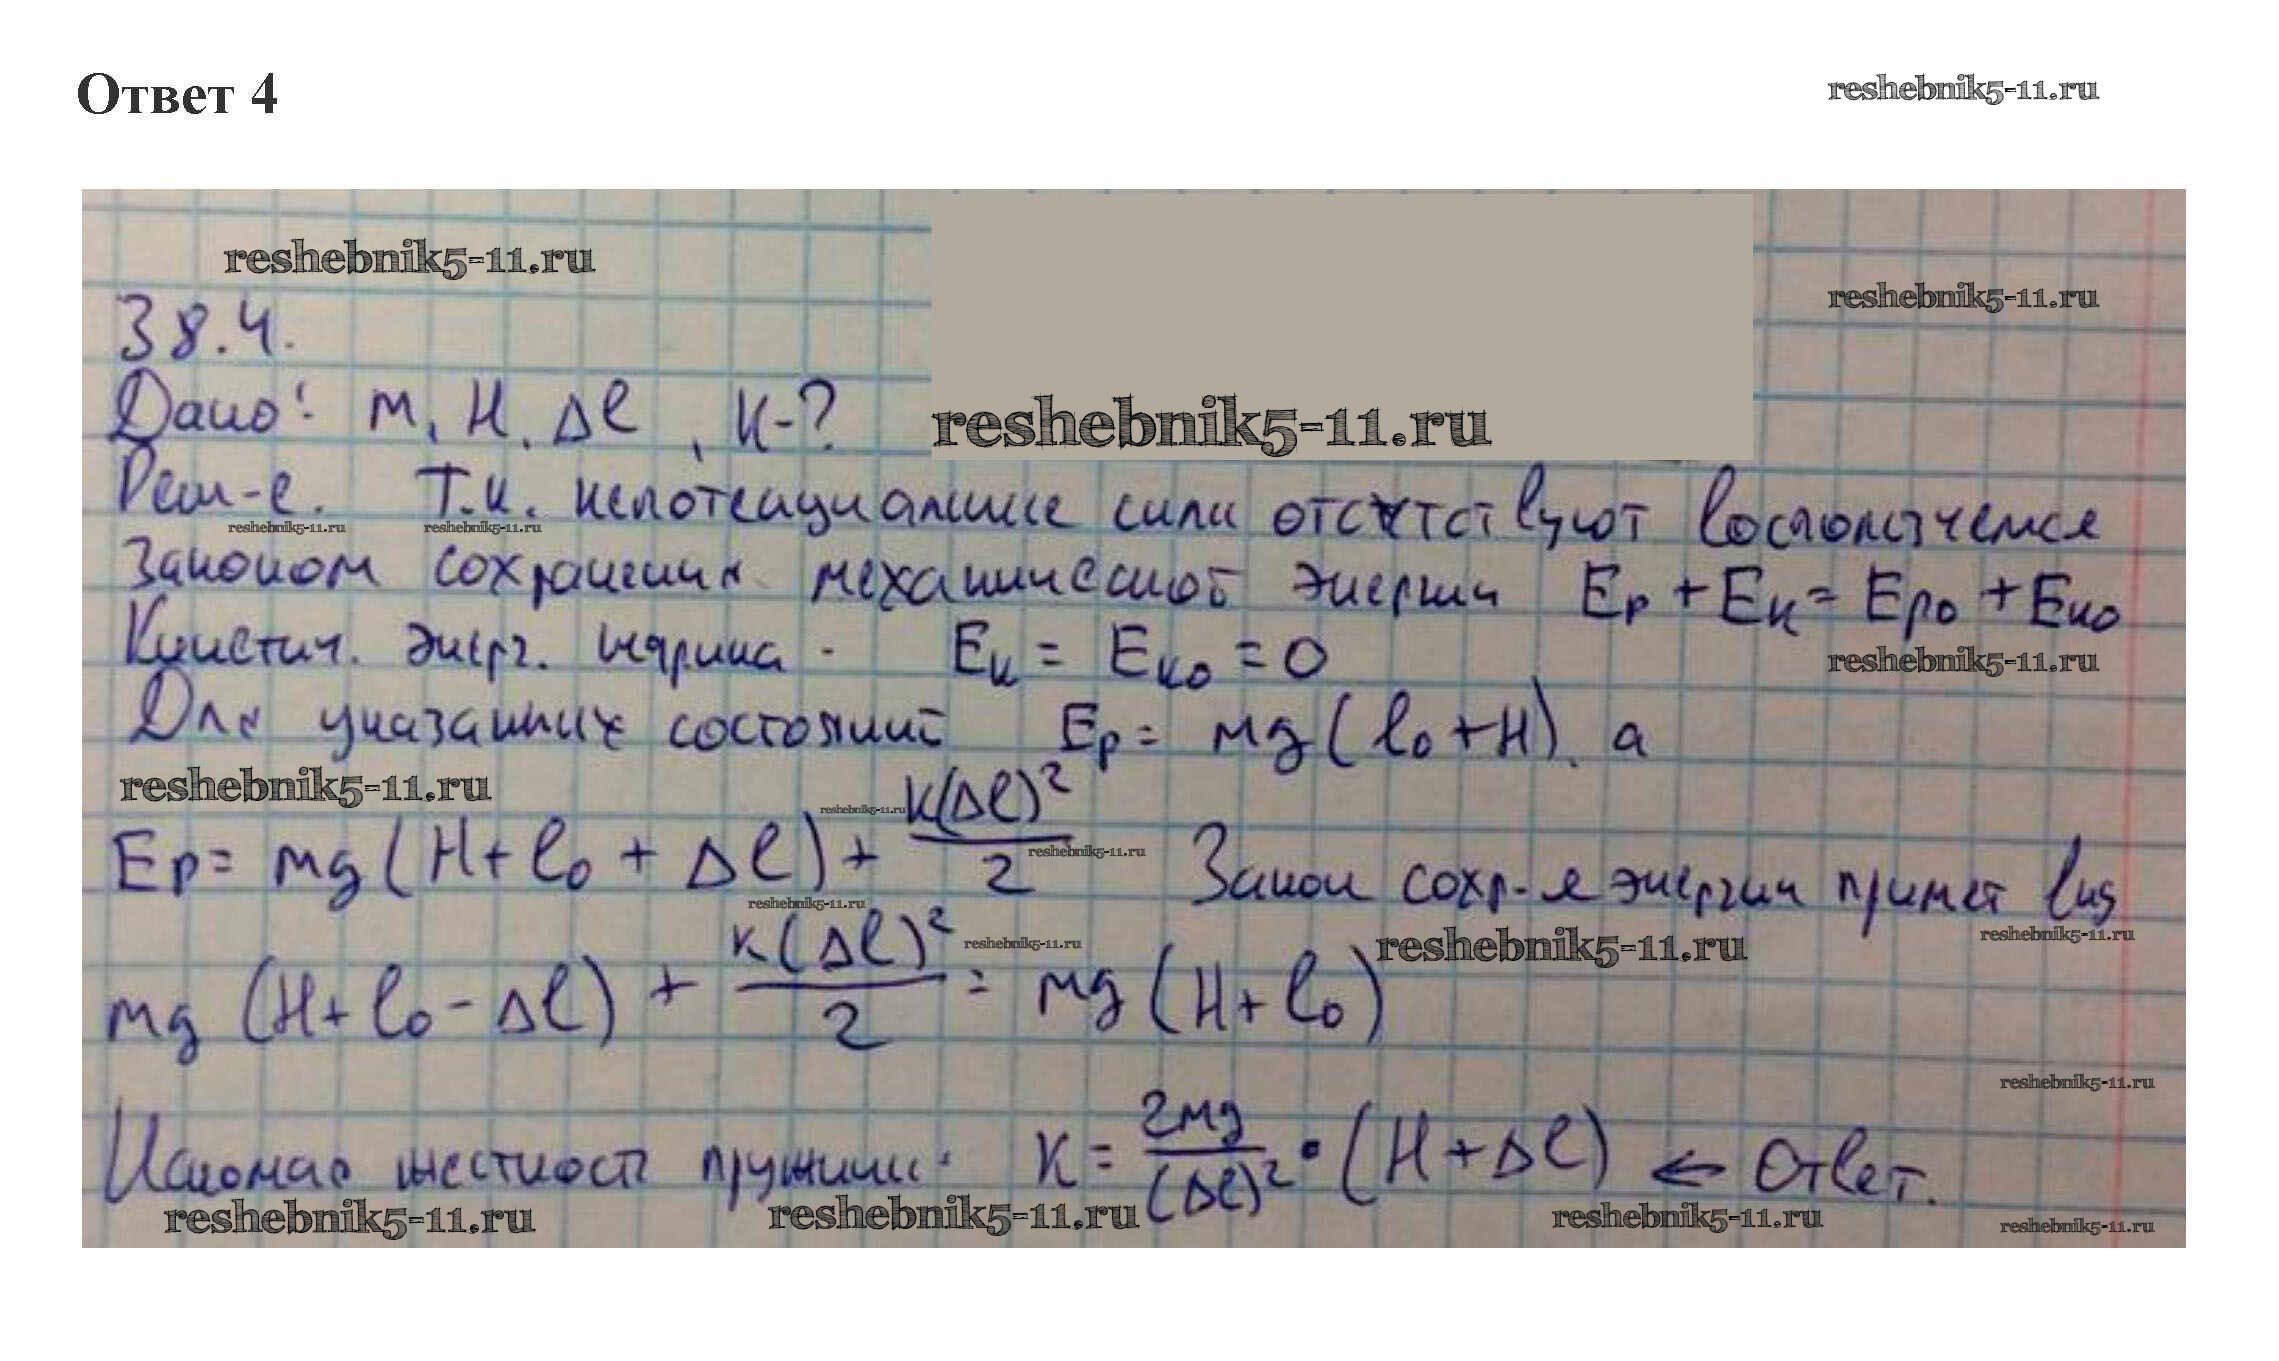 Ответ 4
reshebnik5-11.ru
reshebnik5-11.ru
reshebnik5-11.ru
38.4.
Дано: m, H, Δl, K-?
reshebnik5-11.ru
Реш-е. Т.к. непотенциальные силы отсутствуют воспользуемся
reshebnik5-11.ru reshebnik5-11.ru
Законом сохранения механической энергии Ep + Eк = Epo + Eко
Кинетич. энерг. шарика - Eк = Eко = 0
reshebnik5-11.ru
Для указанных состояний Ep = mg(l₀+H), а
reshebnik5-11.ru reshebnik5-11.ru
Ep = mg(H+l₀+Δl) + K(Δl)²/2 Закон сохр-я энергии примет вид
reshebnik5-11.ru
reshebnik5-11.ru
reshebnik5-11.ru reshebnik5-11.ru reshebnik5-11.ru
mg (H+l₀-Δl) + K(Δl)²/2 = mg(H+l₀)
reshebnik5-11.ru
Искомая жесткость пружины: K = 2mg/(Δl)² · (H+Δl) ← Ответ.
reshebnik5-11.ru reshebnik5-11.ru reshebnik5-11.ru reshebnik5-11.ru